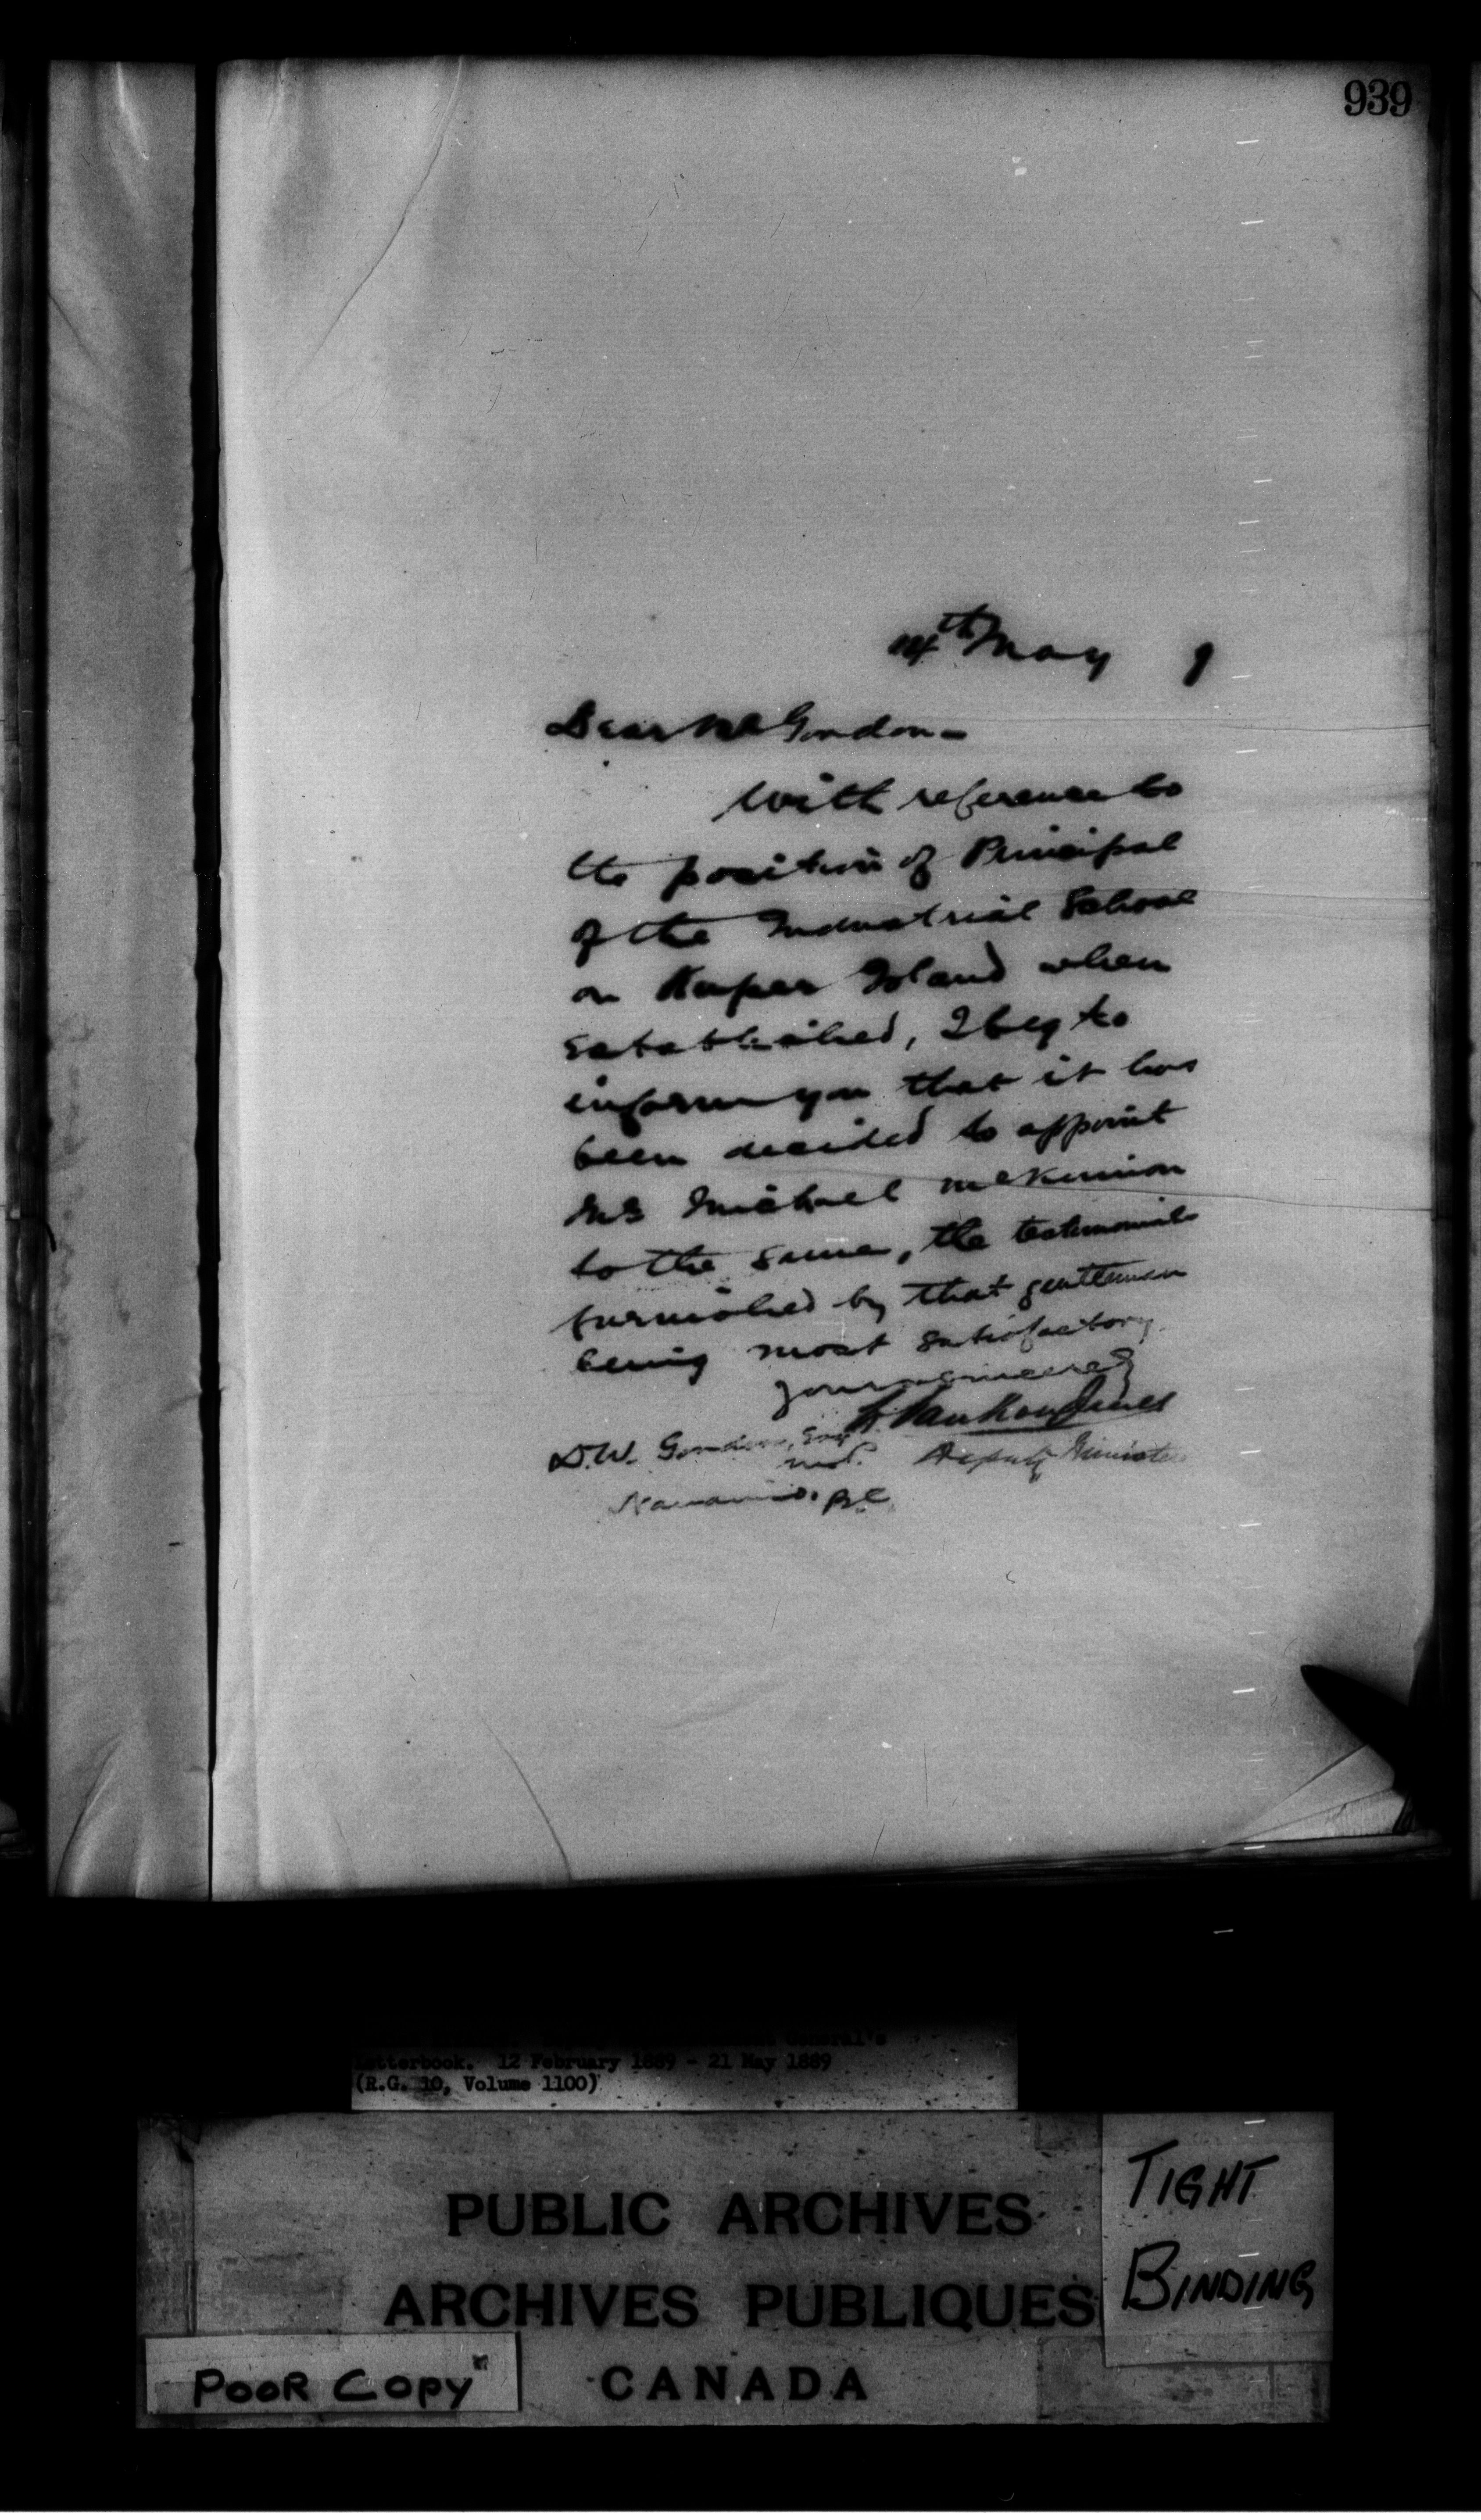 939
14th May 9
Dear Mr Gordon -
With reference to
the position of Principal
of the Industrial School
on Kuper Island when
established, I beg to
inform you that it has
been decided to appoint
Mr Michael McKinnon
to the same, the testimonials
furnished by that gentleman
being most satisfactory.
Yours sincerely
L. VanKoughnet
D.W. Gordon, Esq Deputy Minister
M.P.
Nanaimo. BC
General's
Letterbook. 12 February 1889 - 21 May 1889
(R.G. 10, Volume 1100)
PUBLIC ARCHIVES
ARCHIVES PUBLIQUES
CANADA
TIGHT
BINDING
POOR COPY